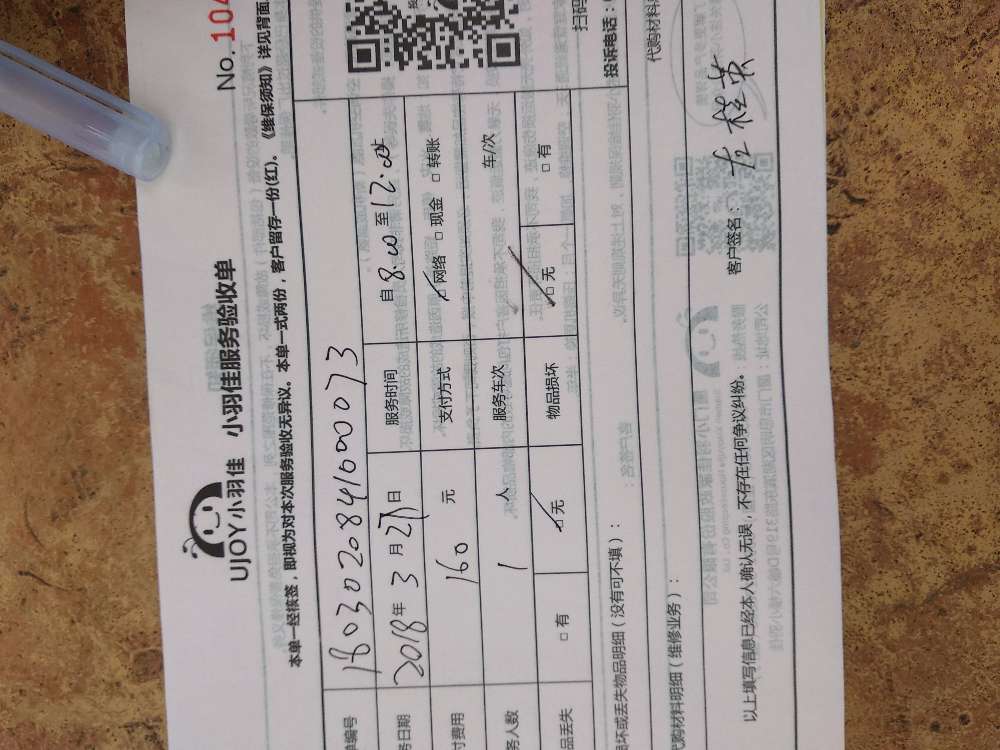 No. 104
UJOY小羽佳 小羽佳服务验收单
本单一经核签，即视为对本次服务验收无异议。本单一式两份，客户留存一份(红)。《维保须知》详见背面
单编号 180302084100073
务日期 2018年3月 日 服务时间 自8:00至12:00
付费用 160元 支付方式 ☑网络 □现金 □转账
务人数 1人 服务车次 车/次
品丢失 □有 ☑无 物品损坏 ☑无 □有
损坏或丢失物品明细（没有可不填）：
代购材料明细（维修业务）：
代购材料
以上填写信息已经本人确认无误，不存在任何争议纠纷。 客户签名：
扫码
投诉电话：